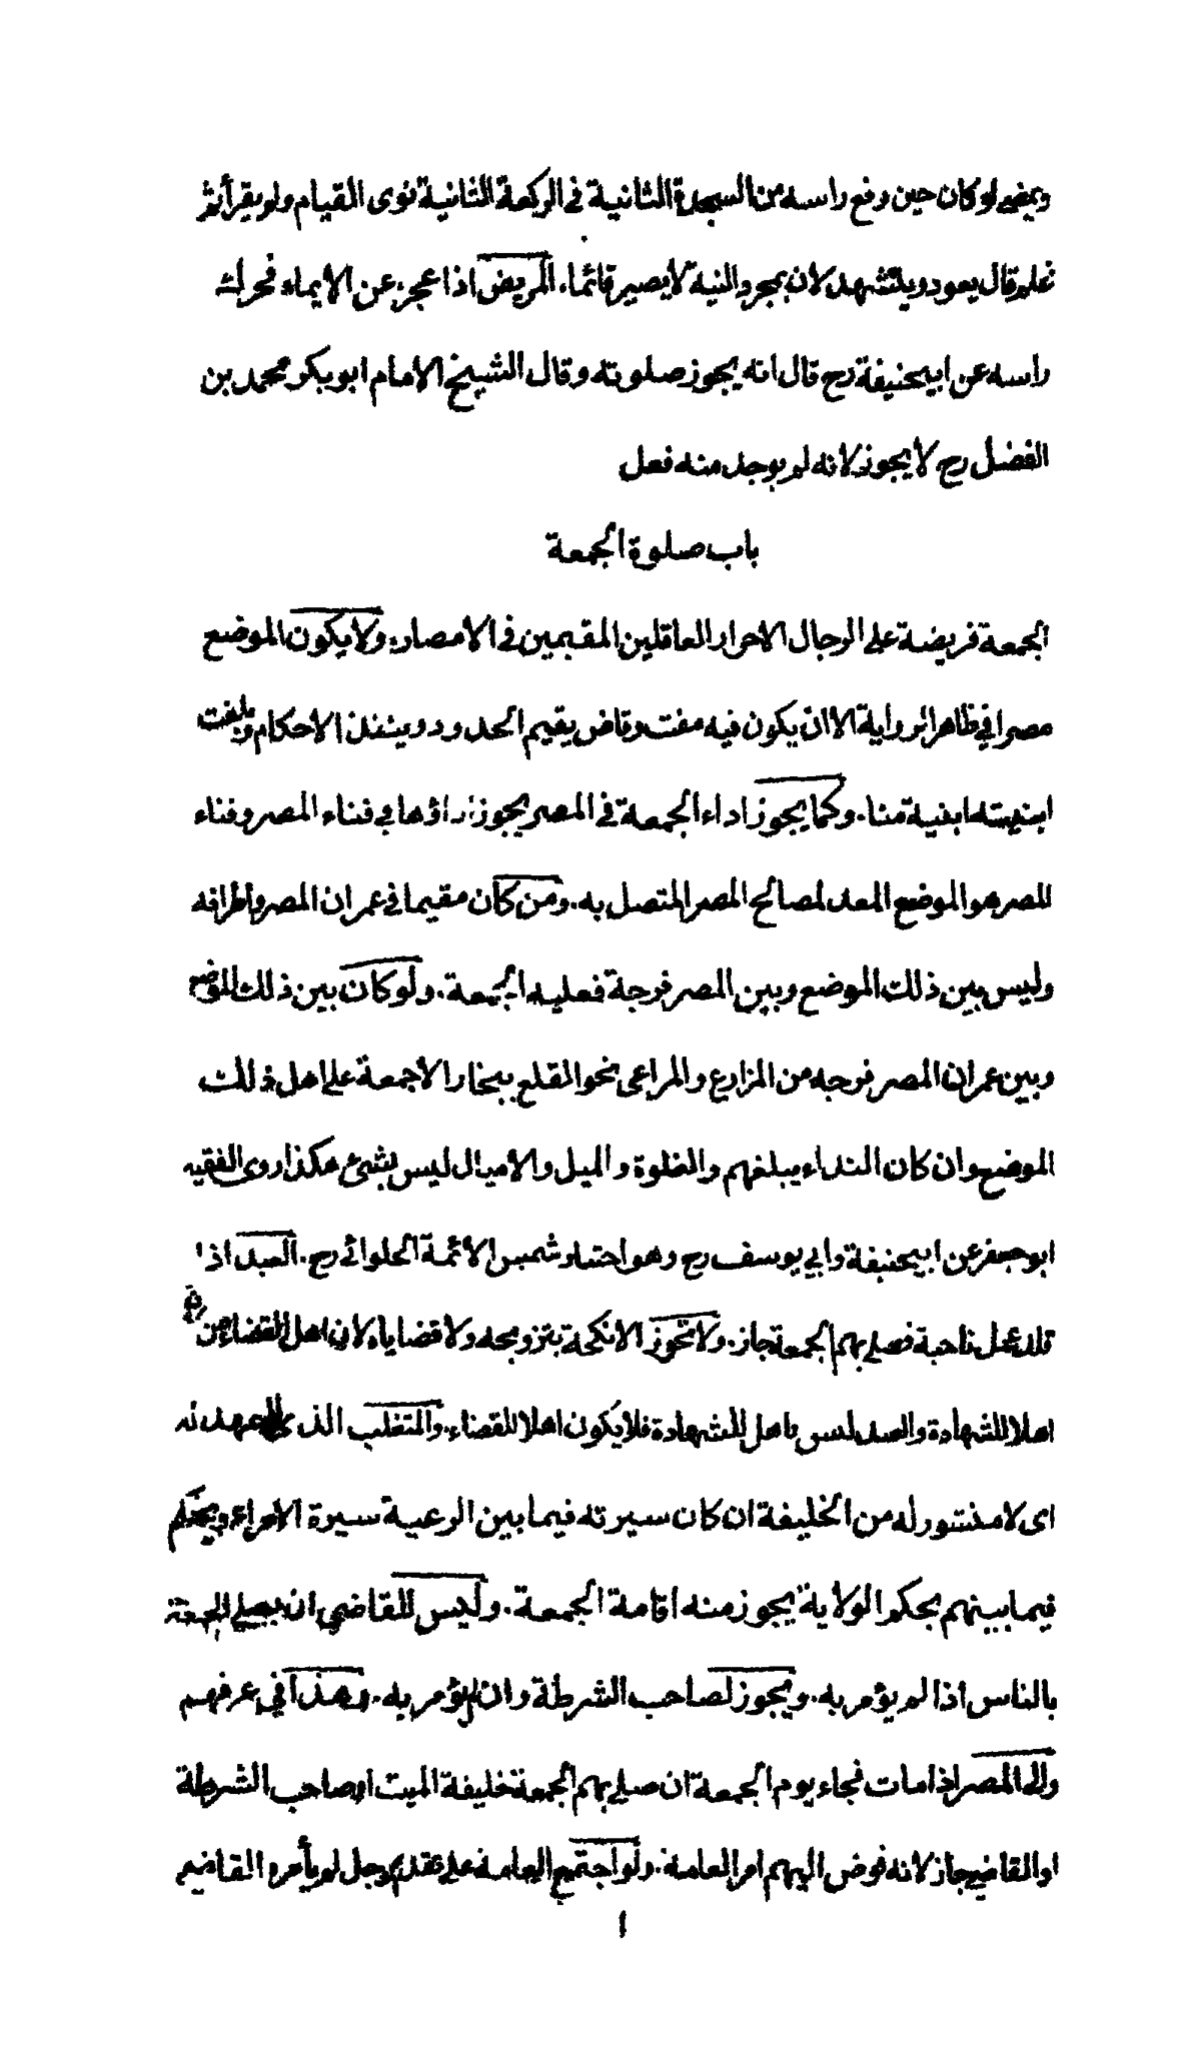 ويمضي لو كان حين رفع راسه من السجدة الثانية في الركعة الثانية نوى القيام ولم يقرأ ثم
علم قال يعود ويتشهد لان بمجرد النية لا يصير قائما. المريض اذا عجز عن الايماء فحرك
راسه عن ابيحنيفة رح قال انه يجوز صلوته وقال الشيخ الامام ابوبكر محمد بن
الفضل رح لا يجوز لانه لم يوجد منه فعل
باب صلوة الجمعة
الجمعة فريضة على الرجال الاحرار العاقلين المقيمين في الامصار. ولا يكون الموضع
مصرا في ظاهر الرواية الا ان يكون فيه مفت وقاض يقيم الحدود وينفذ الاحكام وبلغت
ابنيته ابنية منا. وكما يجوز اداء الجمعة في المصر يجوز اداؤها في فناء المصر وفناء
المصر هو الموضع المعد لمصالح المصر المتصل به. ومن كان مقيما في عمران المصر واطرافه
وليس بين ذلك الموضع وبين المصر فرجة فعليه الجمعة. ولو كان بين ذلك الموضع
وبين عمران المصر فرجه من المزارع والمراعى نحو القلع ببخارا لا جمعة على اهل ذلك
الموضع وان كان النداء يبلغهم والغلوة والميل والاميال ليس بشئ هكذا روى الفقيه
ابو جعفر عن ابيحنيفة وابي يوسف رح وهو اختيار شمس الائمة الحلوائي رح. العبد اذا
قلد عمل ناحية فصلى بهم الجمعة جاز. ولا تجوز الانكحة بتزويجه ولا قضاياه لان اهل القضاء من كان
اهلا للشهادة والعبد ليس باهل للشهادة فلا يكون اهلا للقضاء. والمتغلب الذى لا عهد له
اى لا منشور له من الخليفة ان كان سيرته فيما بين الرعية سيرة الامراء ويحكم
فيما بينهم بحكم الولاية يجوز منه اقامة الجمعة. وليس للقاضي ان يصلي الجمعة
بالناس اذا لم يؤمر به. ويجوز لصاحب الشرطة وان لم يؤمر به. وهذا في عرفهم
والي المصر اذا مات فجاء يوم الجمعة ان صلى بهم الجمعة خليفة الميت او صاحب الشرطة
او القاضي جاز لانه فوض اليهم امر العامة. ولو اجتمع العامة على تقديم رجل لم يأمره القاضي
ا